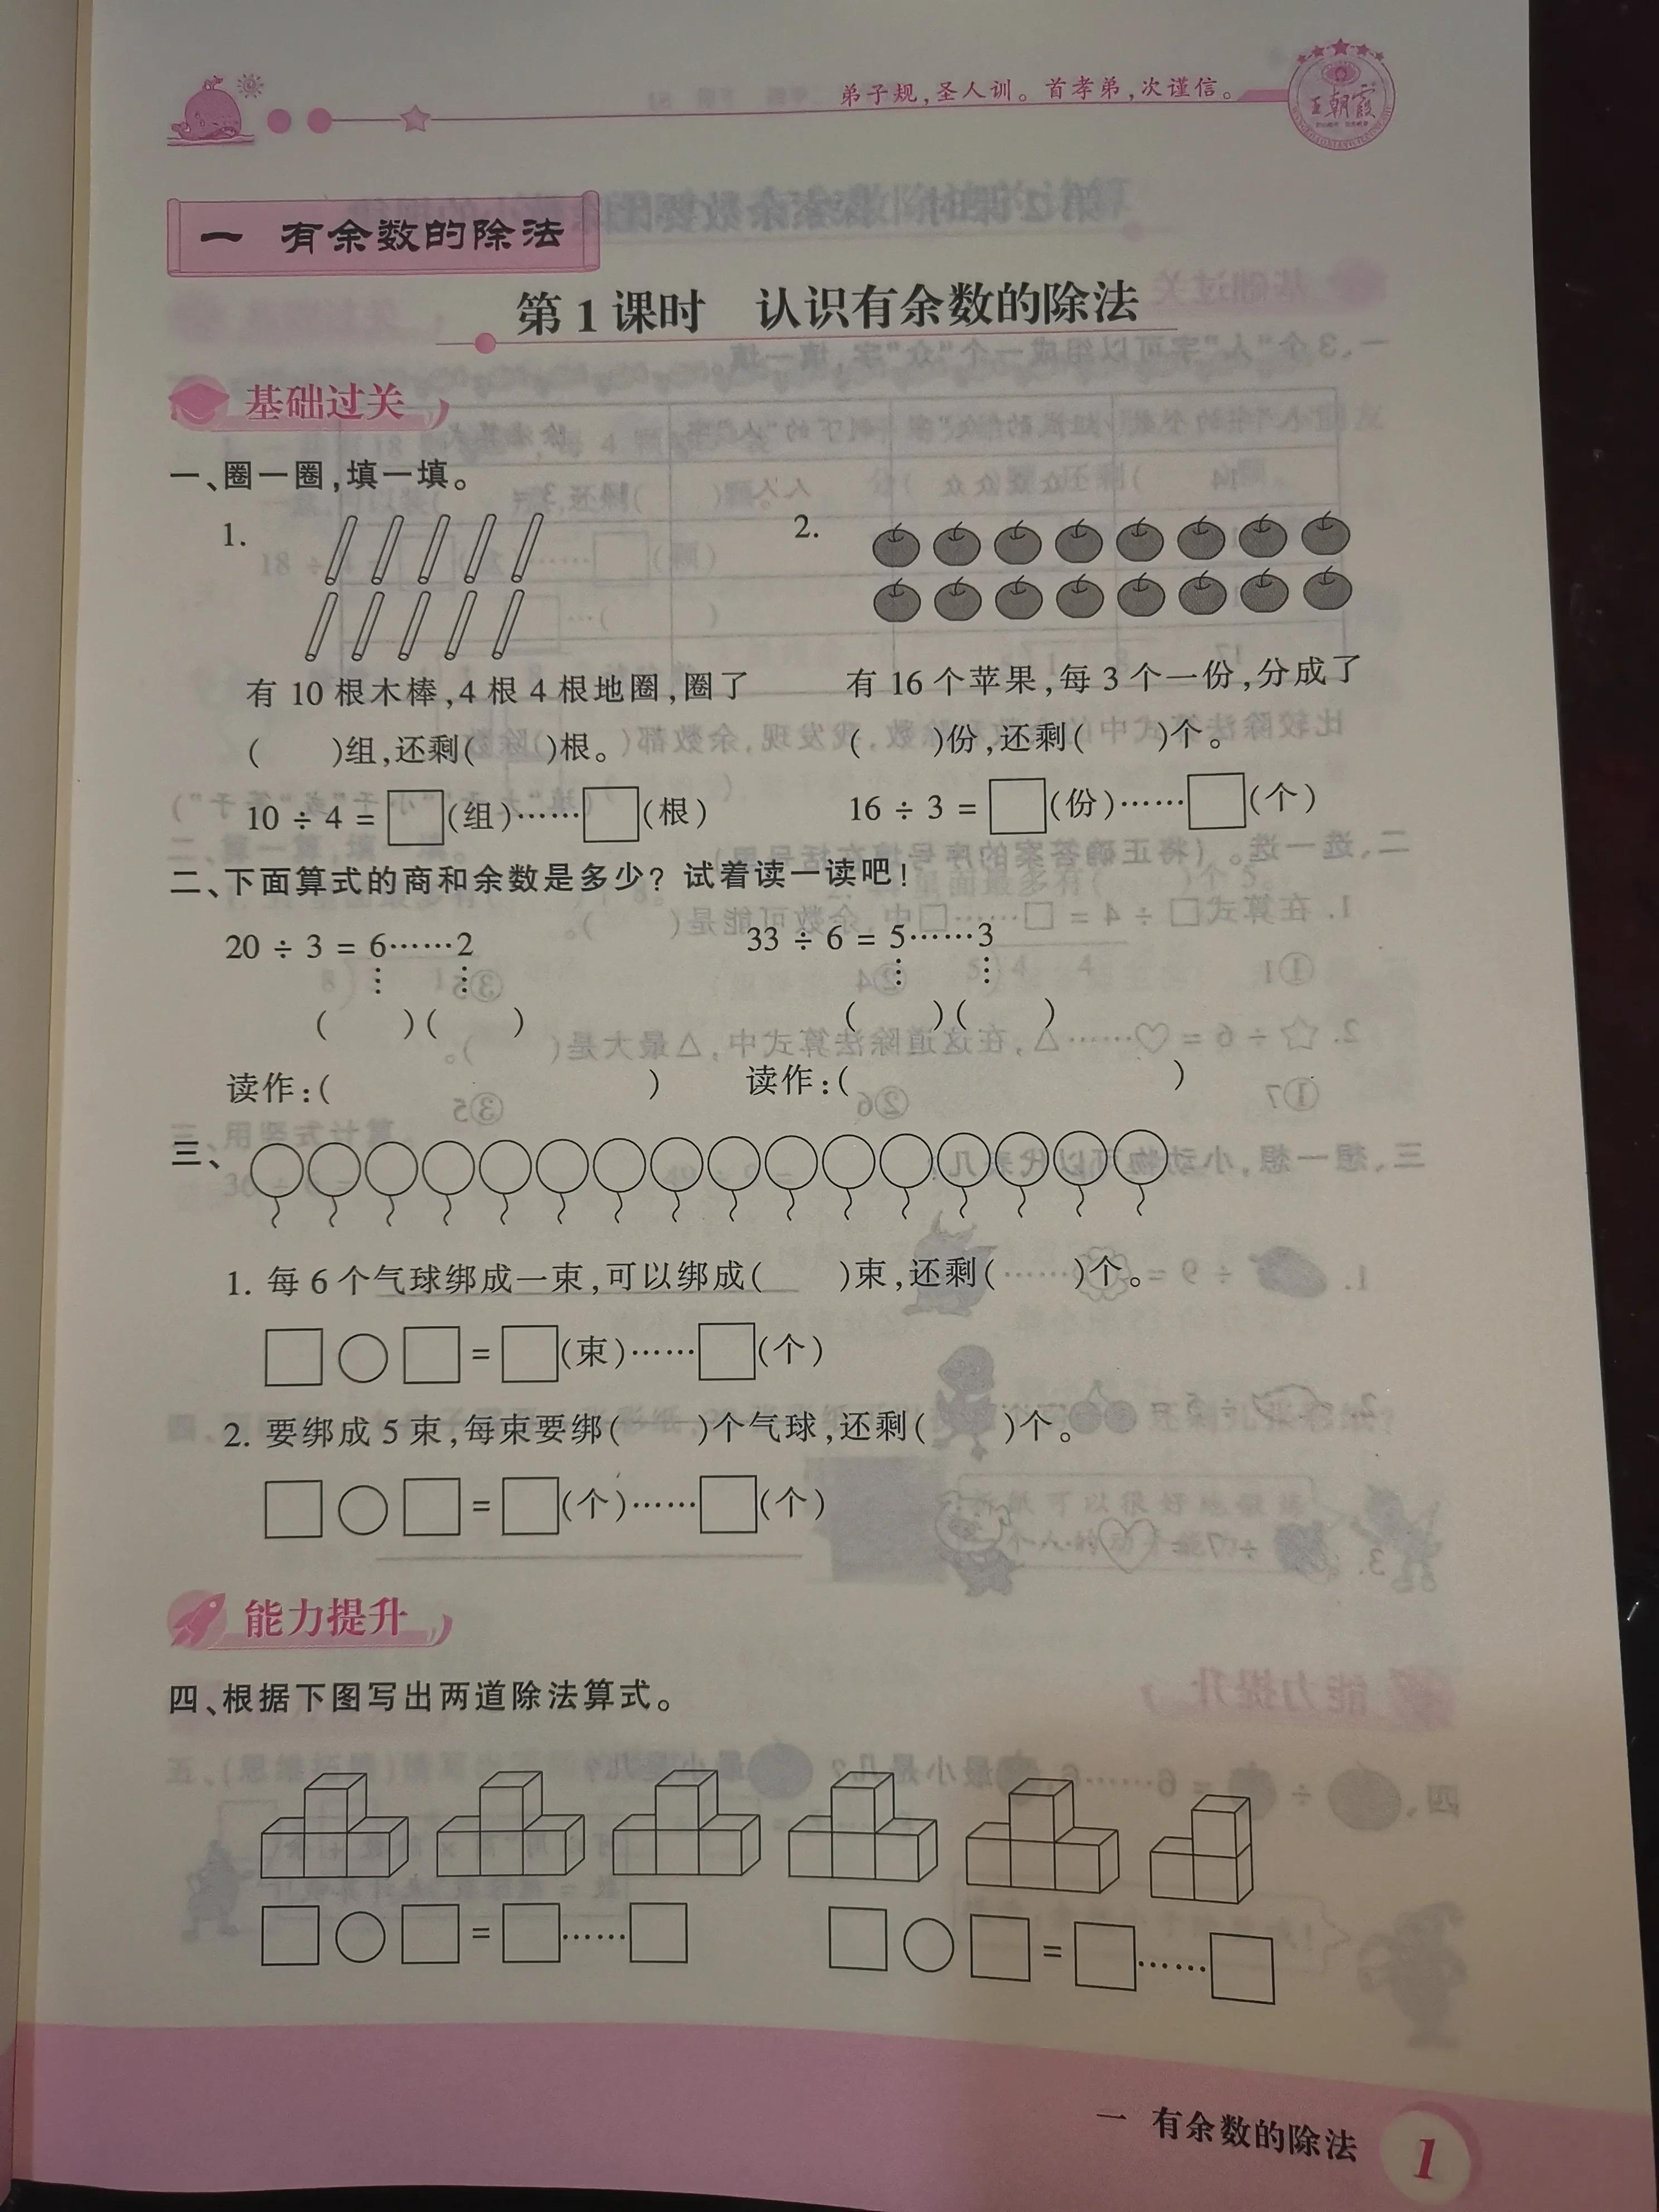 弟子规,圣人训。首孝弟,次谨信。
王朝霞
一 有余数的除法
第1课时 认识有余数的除法
基础过关
一、圈一圈,填一填。
1.
2.
有10根木棒,4根4根地圈,圈了
( )组,还剩( )根。
10÷4=□(组)……□(根)
有16个苹果,每3个一份,分成了
( )份,还剩( )个。
16÷3=□(份)……□(个)
二、下面算式的商和余数是多少?试着读一读吧!
20÷3=6……2 33÷6=5……3
( )( ) ( )( )
读作:( ) 读作:( )
三、
1. 每6个气球绑成一束,可以绑成( )束,还剩( )个。
□○□=□(束)……□(个)
2. 要绑成5束,每束要绑( )个气球,还剩( )个。
□○□=□(个)……□(个)
能力提升
四、根据下图写出两道除法算式。
□○□=□……□ □○□=□……□
一 有余数的除法 1